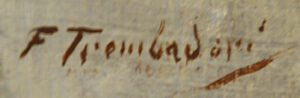 F Trombadori